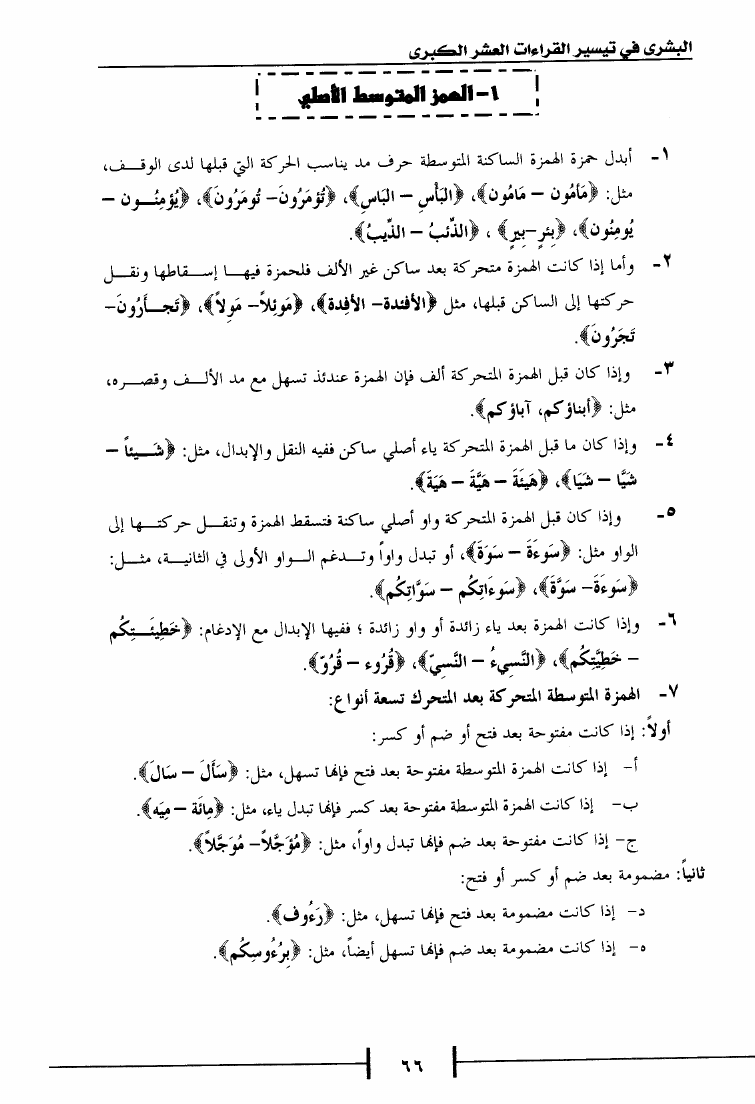 البشرى في تيسير القراءات العشر الكبرى
١- الهمز المتوسط الأصلي
١- أبدل حمزة الهمزة الساكنة المتوسطة حرف مد يناسب الحركة التي قبلها لدى الوقف،
مثل: ﴿مَأمُون – مَامُون﴾، ﴿البَأْسِ – البَاسِ﴾، ﴿تُؤمَرُونَ– تُومَرُونَ﴾، ﴿يُؤمِنُون –
يُومِنُون﴾، ﴿بِئرٍ–بِيرٍ﴾ ، ﴿الذِّئبُ – الذِّيبُ﴾.
٢- وأما إذا كانت الهمزة متحركة بعد ساكن غير الألف فلحمزة فيها إسقاطها ونقل
حركتها إلى الساكن قبلها، مثل ﴿الأفئدة– الأفِدة﴾، ﴿مَوئِلاً– مَوِلاً﴾، ﴿تَجأَرُونَ–
تَجَرُونَ﴾.
٣- وإذا كان قبل الهمزة المتحركة ألف فإن الهمزة عندئذ تسهل مع مد الألف وقصره،
مثل: ﴿أبناؤكم، آباؤكم﴾.
٤- وإذا كان ما قبل الهمزة المتحركة ياء أصلي ساكن ففيه النقل والإبدال، مثل: ﴿شَيئاً –
شَيَّا – شَيَا﴾، ﴿هَيئَةَ – هَيَّةَ – هَيَةَ﴾.
٥- وإذا كان قبل الهمزة المتحركة واو أصلي ساكنة فتسقط الهمزة وتنقل حركتها إلى
الواو مثل: ﴿سَوءَةَ – سَوَةَ﴾، أو تبدل واواً وتدغم الواو الأولى في الثانية، مثل:
﴿سَوءَةَ– سَوَّةَ﴾، ﴿سَوءَاتِكُم – سَوَّاتِكُم﴾.
٦- وإذا كانت الهمزة بعد ياء زائدة أو واو زائدة ؛ ففيها الإبدال مع الإدغام: ﴿خَطِيئَتِكُم
– خَطِيَّتِكُم﴾، ﴿النَّسِيءُ – النَّسِيّ﴾، ﴿قُرُوء – قُرُوّ﴾.
٧- الهمزة المتوسطة المتحركة بعد المتحرك تسعة أنواع:
أولاً: إذا كانت مفتوحة بعد فتح أو ضم أو كسر:
أ- إذا كانت الهمزة المتوسطة مفتوحة بعد فتح فإنها تسهل، مثل: ﴿سَأَلَ – سَالَ﴾.
ب- إذا كانت الهمزة المتوسطة مفتوحة بعد كسر فإنها تبدل ياء، مثل: ﴿مِائَة – مِيَه﴾.
ج- إذا كانت مفتوحة بعد ضم فإنها تبدل واواً، مثل: ﴿مُؤَجَّلاً– مُوَجَّلاً﴾.
ثانياً: مضمومة بعد ضم أو كسر أو فتح:
د- إذا كانت مضمومة بعد فتح فإنها تسهل، مثل: ﴿رَءُوف﴾.
ه- إذا كانت مضمومة بعد ضم فإنها تسهل أيضاً، مثل: ﴿بِرُءُوسِكُم﴾.
٦٦